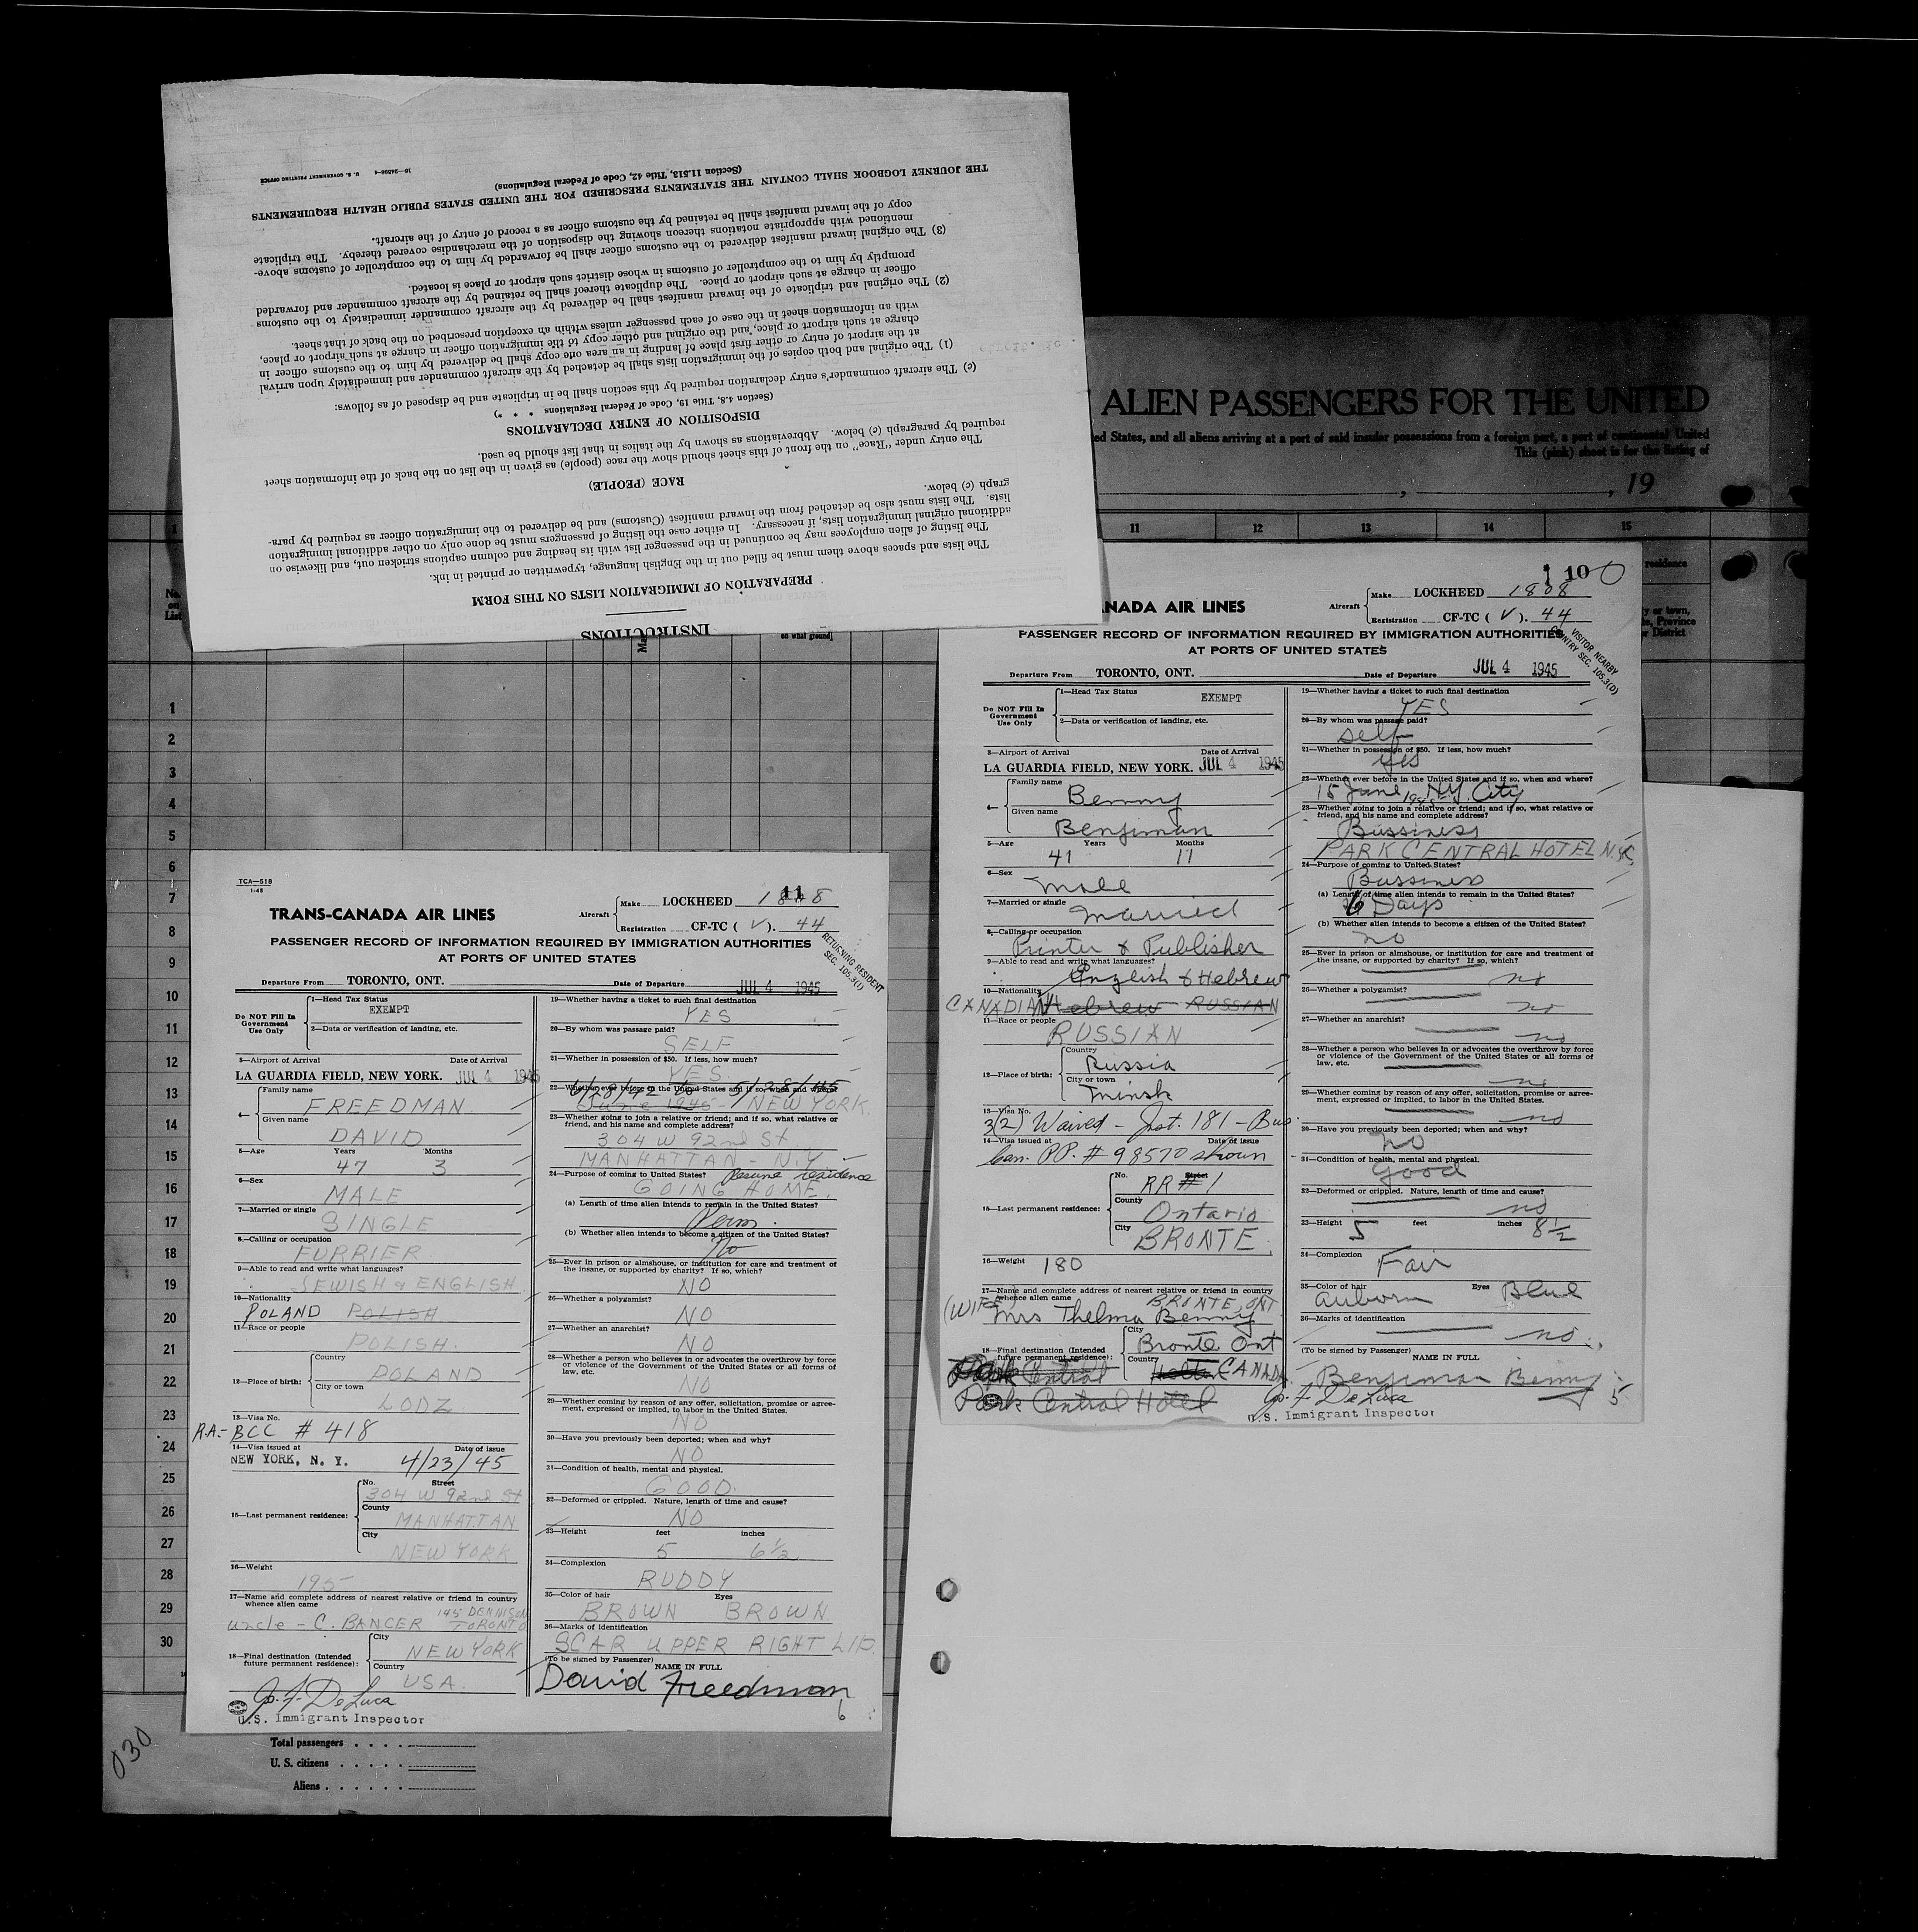 INSTRUCTIONS
PREPARATION OF IMMIGRATION LISTS ON THIS FORM
The lists and spaces above them must be filled out in the English language, typewritten or printed in ink.
The listing of alien employees may be continued in the passenger list with its heading and column captions stricken out, and likewise on
additional original immigration lists, if necessary. In either case the listing of passengers must be done only on other additional immigration
lists. The lists must also be detached from the inward manifest (Customs) and be delivered to the immigration officer as required by para-
graph (c) below.
RACE (PEOPLE)
The entry under "Race" on the front of this sheet should show the race (people) as given in the list on the back of the information sheet
required by paragraph (c) below. Abbreviations as shown by the italics in that list should be used.
DISPOSITION OF ENTRY DECLARATIONS
(Section 4.8, Title 19, Code of Federal Regulations * * *)
(c) The aircraft commander's entry declaration required by this section shall be in triplicate and be disposed of as follows:
(1) The original and both copies of the immigration lists shall be detached by the aircraft commander and immediately upon arrival
at the airport of entry or other first place of landing in an area one copy shall be delivered by him to the customs officer in
charge at such airport or place, and the original and other copy to the immigration officer in charge at such airport or place,
with an information sheet in the case of each passenger unless within an exception prescribed on the back of that sheet.
(2) The original and triplicate of the inward manifest shall be delivered by the aircraft commander immediately to the customs
officer in charge at such airport or place. The duplicate thereof shall be retained by the aircraft commander and forwarded
promptly by him to the comptroller of customs in whose district such airport or place is located.
(3) The original inward manifest delivered to the customs officer shall be forwarded by him to the comptroller of customs above-
mentioned with appropriate notations thereon showing the disposition of the merchandise covered thereby. The triplicate
copy of the inward manifest shall be retained by the customs officer as a record of entry of the aircraft.
THE JOURNEY LOGBOOK SHALL CONTAIN THE STATEMENTS PRESCRIBED FOR THE UNITED STATES PUBLIC HEALTH REQUIREMENTS
(Section 11.513, Title 42, Code of Federal Regulations)
16—24598-4 U. S. GOVERNMENT PRINTING OFFICE
ALIEN PASSENGERS FOR THE UNITED
ed States, and all aliens arriving at a port of said insular possessions from a foreign port, a port of continental United
This (pink) sheet is for the listing of
, , 19
11 12 13 14 15
1
No.
on
List
on what ground]
residence
y or town,
te, Province
or District
1
2
3
4
5
6
7
8
9
10
11
12
13
14
15
16
17
18
19
20
21
22
23
24
25
26
27
28
29
30
Total passengers
U. S. citizens
Aliens
030
10
NADA AIR LINES
Aircraft
Make LOCKHEED 1808
Registration CF-TC ( V ). 44
PASSENGER RECORD OF INFORMATION REQUIRED BY IMMIGRATION AUTHORITIES
AT PORTS OF UNITED STATES
VISITOR NEARBY
COUNTRY SEC. 105.3(D)
Departure From TORONTO, ONT. Date of Departure JUL 4 1945
Do NOT Fill In
Government
Use Only
1—Head Tax Status EXEMPT
2—Data or verification of landing, etc.
3—Airport of Arrival Date of Arrival
LA GUARDIA FIELD, NEW YORK. JUL 4 1945
4— Family name
Benny
Given name
Benjiman
5—Age Years Months
41 11
6—Sex
Male
7—Married or single
Married
8—Calling or occupation
Printer & Publisher
9—Able to read and write what languages?
English & Hebrew
10—Nationality
CANADIAN Hebrew RUSSIAN
11—Race or people
RUSSIAN
12—Place of birth:
Country
Russia
City or town
Minsk
13—Visa No.
3(2) Waived - Inst. 181 - Bus.
14—Visa issued at Date of issue
Can. PP. # 98570 shown
15—Last permanent residence:
No. Street
RR # 1
County
Ontario
City
BRONTE
16—Weight 180
17—Name and complete address of nearest relative or friend in country
whence alien came
BRONTE, ONT
(WIFE) Mrs Thelma Benny
18—Final destination (Intended
future permanent residence):
City
Bronte Ont
Country
Halton CANADA
Park Central
Park Central Hotel
19—Whether having a ticket to such final destination
YES
20—By whom was passage paid?
self
21—Whether in possession of $50. If less, how much?
yes
22—Whether ever before in the United States and if so, when and where?
15 June 1945 N.Y. City
23—Whether going to join a relative or friend; and if so, what relative or
friend, and his name and complete address?
Bussiness
PARK CENTRAL HOTEL N.Y.C.
24—Purpose of coming to United States?
Bussiness
(a) Length of time alien intends to remain in the United States?
6 Days
(b) Whether alien intends to become a citizen of the United States?
no
25—Ever in prison or almshouse, or institution for care and treatment of
the insane, or supported by charity? If so, which?
no
26—Whether a polygamist?
no
27—Whether an anarchist?
no
28—Whether a person who believes in or advocates the overthrow by force
or violence of the Government of the United States or all forms of
law, etc.
no
29—Whether coming by reason of any offer, solicitation, promise or agree-
ment, expressed or implied, to labor in the United States.
no
30—Have you previously been deported; when and why?
no
31—Condition of health, mental and physical.
Good
32—Deformed or crippled. Nature, length of time and cause?
no
33—Height 5 feet inches 8½
34—Complexion
Fair
35—Color of hair Eyes
auborn Blue
36—Marks of identification
no
(To be signed by Passenger)
NAME IN FULL
Benjiman Benny
5
Jo. F. DeLuca
U.S. Immigrant Inspector
TCA—518
1-45
11
TRANS-CANADA AIR LINES
Aircraft
Make LOCKHEED 1808
Registration CF-TC ( V ). 44
PASSENGER RECORD OF INFORMATION REQUIRED BY IMMIGRATION AUTHORITIES
AT PORTS OF UNITED STATES
RETURNING RESIDENT
SEC. 105.3(1)
Departure From TORONTO, ONT. Date of Departure JUL 4 1945
Do NOT Fill In
Government
Use Only
1—Head Tax Status
EXEMPT
2—Data or verification of landing, etc.
3—Airport of Arrival Date of Arrival
LA GUARDIA FIELD, NEW YORK. JUL 4 1945
4— Family name
FREEDMAN
Given name
DAVID
5—Age Years Months
47 3
6—Sex
MALE
7—Married or single
SINGLE
8—Calling or occupation
FURRIER
9—Able to read and write what languages?
JEWISH & ENGLISH
10—Nationality
POLAND POLISH
11—Race or people
POLISH.
12—Place of birth:
Country
POLAND
City or town
LODZ
13—Visa No.
R.A.- BCC # 418
14—Visa issued at Date of issue
NEW YORK, N. Y. 4/23/45
15—Last permanent residence:
No. Street
304 W 92nd St
County
MANHATTAN
City
NEW YORK
16—Weight
195
17—Name and complete address of nearest relative or friend in country
whence alien came
uncle - C. BANCER 145 DENNISON TORONTO
18—Final destination (Intended
future permanent residence):
City
NEW YORK
Country
USA.
Jo. F. DeLuca
U.S. Immigrant Inspector
19—Whether having a ticket to such final destination
YES
20—By whom was passage paid?
SELF
21—Whether in possession of $50. If less, how much?
YES.
22—Whether ever before in the United States and if so, when and where?
6/28/42 to 5/28/45
June 1945 - NEW YORK.
23—Whether going to join a relative or friend; and if so, what relative or
friend, and his name and complete address?
304 W 92nd St
MANHATTAN - N.Y.
24—Purpose of coming to United States? Resume residence
GOING HOME.
(a) Length of time alien intends to remain in the United States?
Perm.
(b) Whether alien intends to become a citizen of the United States?
No
25—Ever in prison or almshouse, or institution for care and treatment of
the insane, or supported by charity? If so, which?
NO
26—Whether a polygamist?
NO
27—Whether an anarchist?
NO
28—Whether a person who believes in or advocates the overthrow by force
or violence of the Government of the United States or all forms of
law, etc.
NO
29—Whether coming by reason of any offer, solicitation, promise or agree-
ment, expressed or implied, to labor in the United States.
NO
30—Have you previously been deported; when and why?
NO
31—Condition of health, mental and physical.
GOOD.
32—Deformed or crippled. Nature, length of time and cause?
NO
33—Height feet inches
5 6½
34—Complexion
RUDDY
35—Color of hair Eyes
BROWN BROWN
36—Marks of identification
SCAR UPPER RIGHT LIP.
(To be signed by Passenger)
NAME IN FULL
David Freedman
6